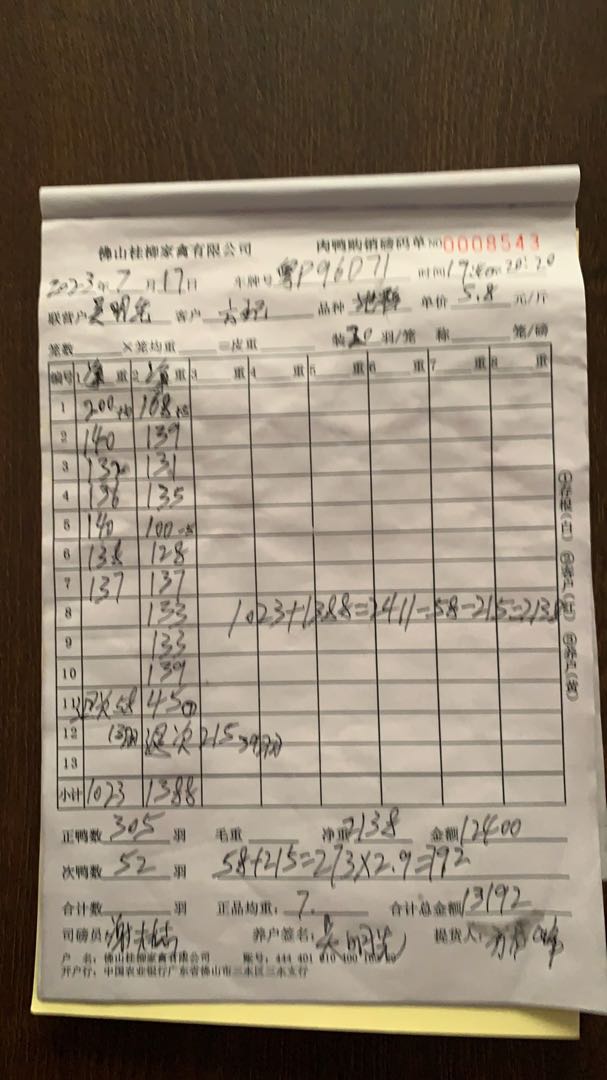 佛山桂柳家禽有限公司 肉鸭购销磅码单 NO 0008543
2023年7月17日 车牌号 粤P96071 时间 20:20
联营户 吴明先 客户 品种 单价 5.8 元/斤
笼数 ×笼均重 =皮重 装 20 羽/笼 称 笼/磅
编号 1 重 2 重 3 重 4 重 5 重 6 重 7 重 8 重
1 200 168
2 140 139
3 132 131
4 136 135
5 140 100
6 138 128
7 137 137
8 133 1023+1388=2411-58-215=2138
9 133
10 139
11 退次58 45
12 13羽 退次 215 39羽
13
小计 1023 1388
正鸭数 305 羽 毛重 净重 2138 金额 12400
次鸭数 52 羽 58+215=273×2.9=792
合计数 羽 正品均重: 7. 合计总金额 13192
司磅员: 养户签名: 吴明先 提货人:
户 名: 佛山桂柳家禽有限公司 账号: 444 401 010 400
开户行: 中国农业银行广东省佛山市三水区三水支行
①存根(白) ②客户(红) ③养户(黄)